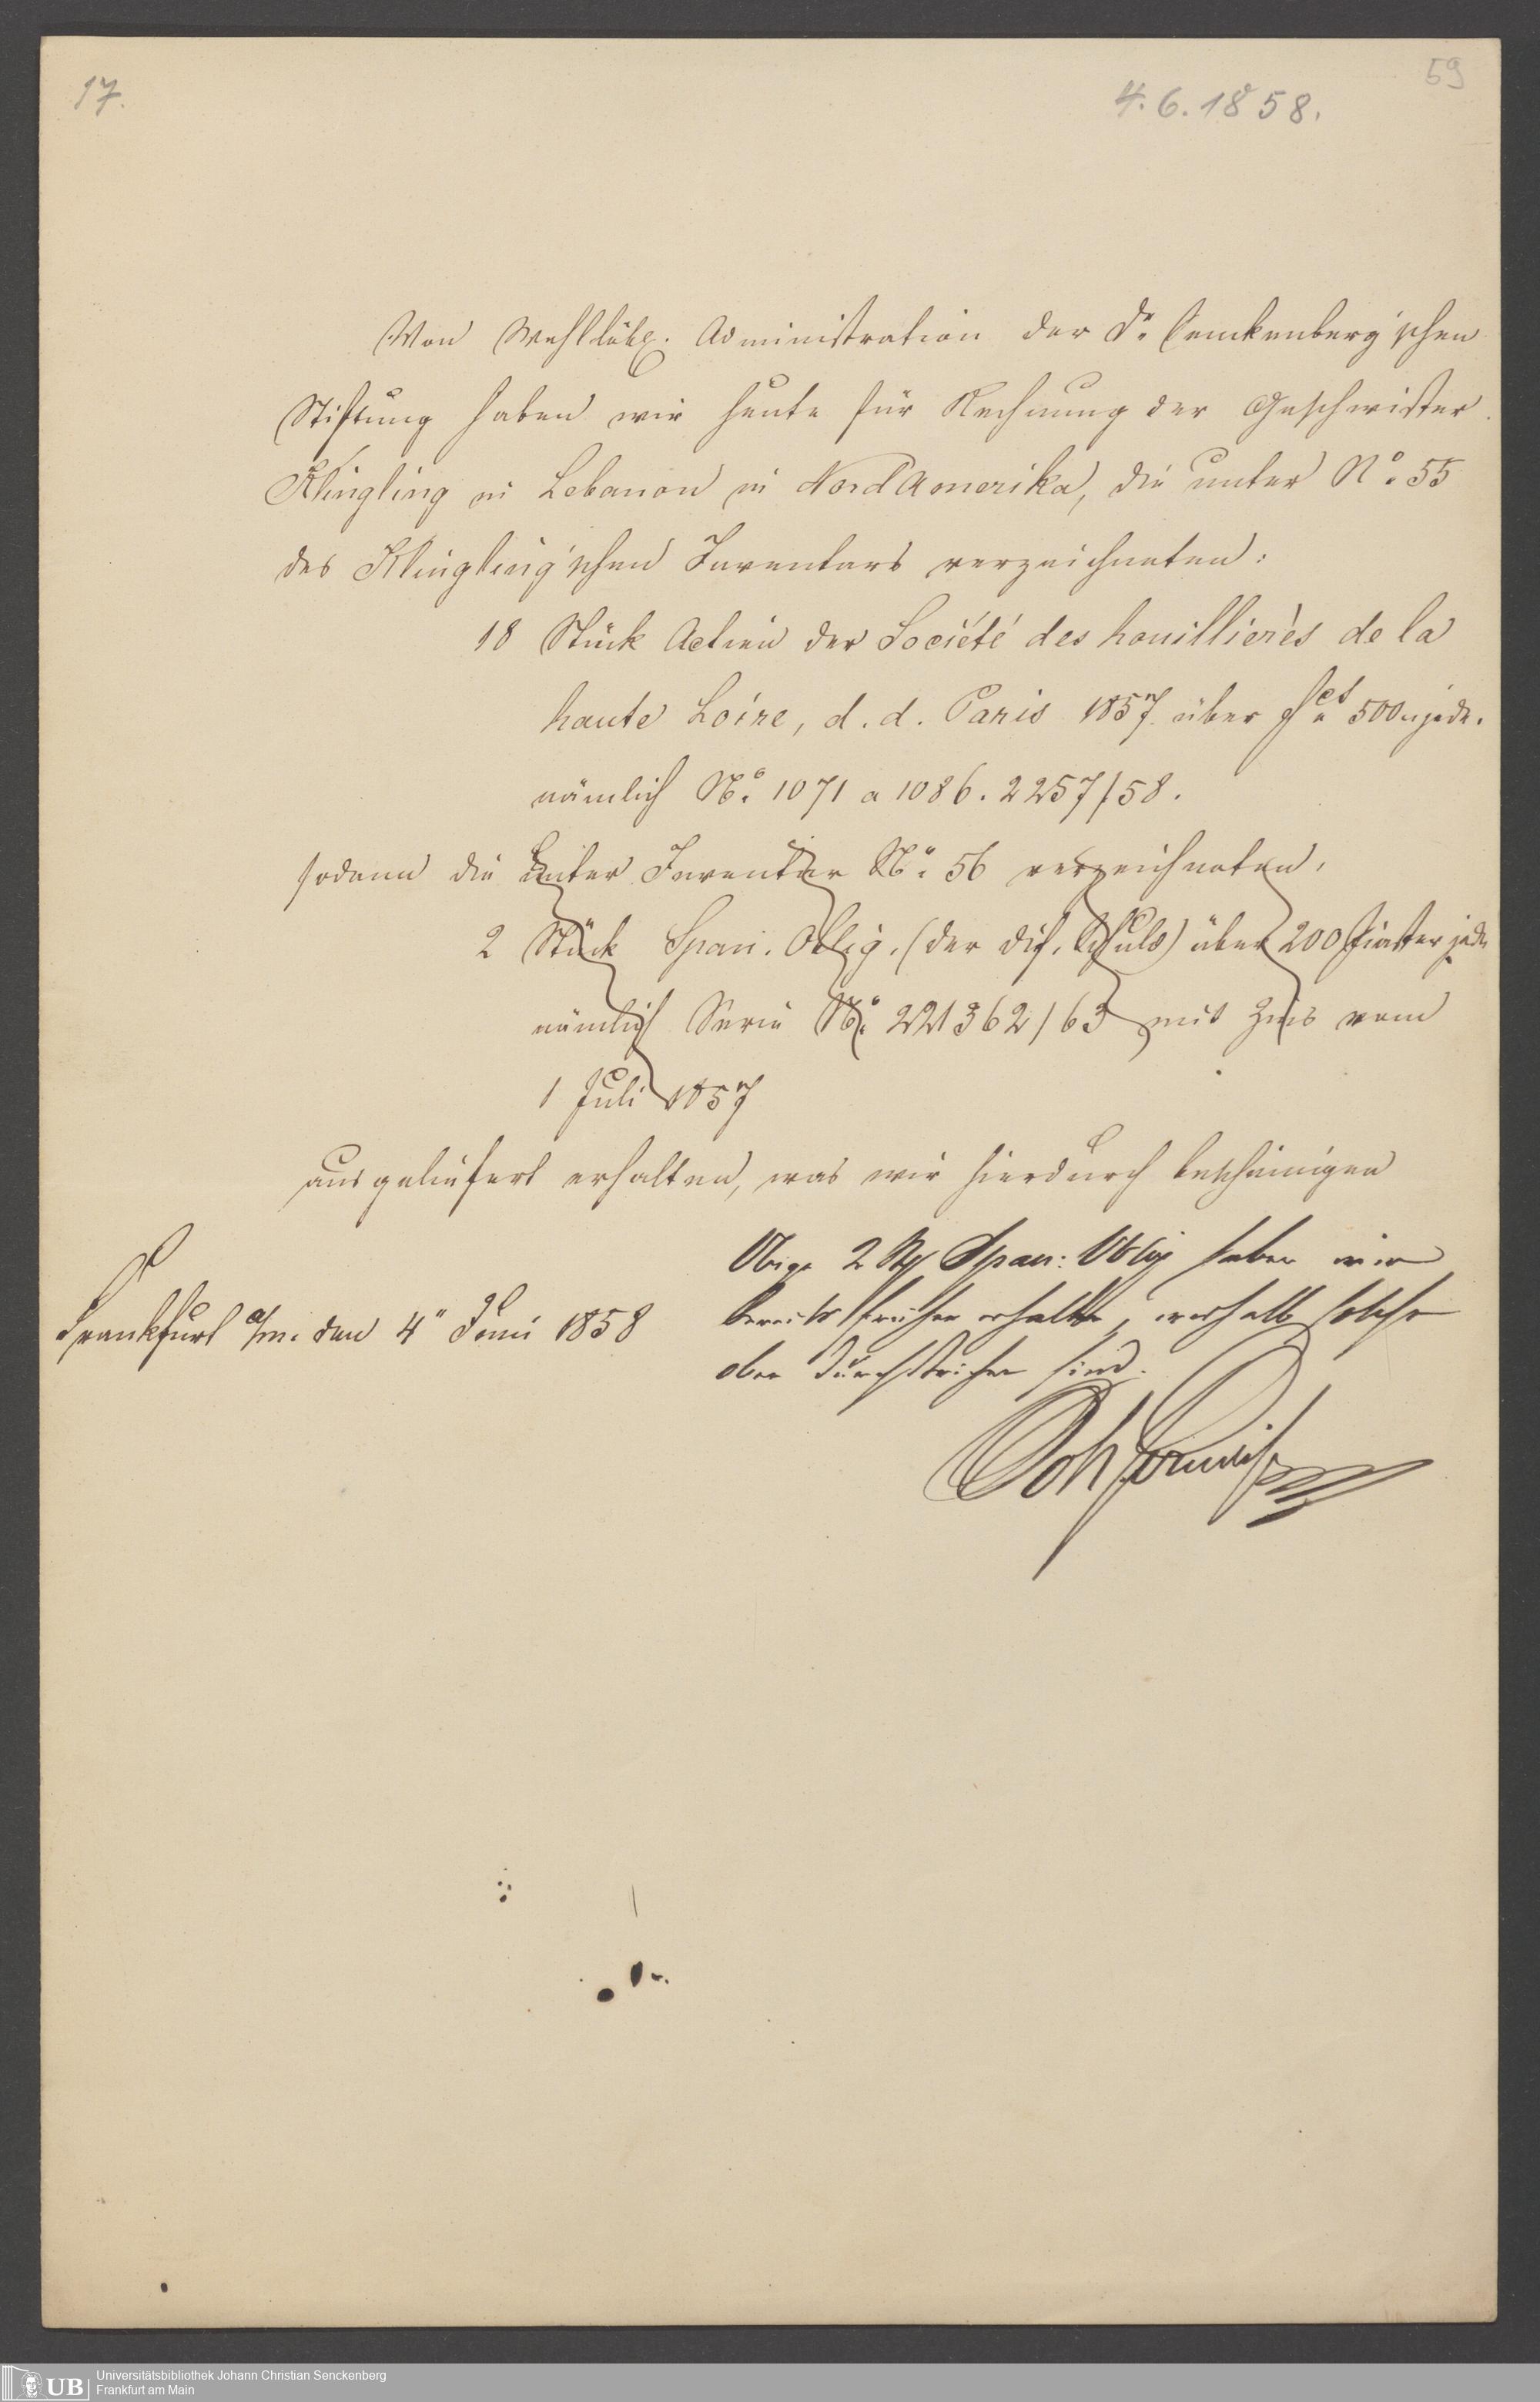 17.
59
4.6.1858.
Von Wohllöbl. Administration der Dr. Senckenberg'schen
Stiftung haben wir heute für Rechnung der Geschwister
Klingling in Lebanon in Nord Amerika, die unter No. 55
des Klingling'schen Inventars verzeichneten:
18 Stück Actien der Société des houillierès de la
haute Loire, d. d. Paris 1857 über fcs 500 jede.
nämlich No. 1071 a 1086. 2257/58.
sodann die unter Inventar No. 56 verzeichneten,
2 Stück Span. Oblig. (der dif. Schuld) über 200 Piaster jede
nämlich Serie No. 221362/63 mit Zins vom
1 Juli 1857
ausgeliefert erhalten, was wir hierdurch bescheinigen
Frankfurt a/m. den 4" Juni 1858
Obige 2 St Span: Oblig haben wir
bereits früher erhalten, weshalb solche
oben durchstrichen sind.
Universitätsbibliothek Johann Christian Senckenberg
Frankfurt am Main
UB